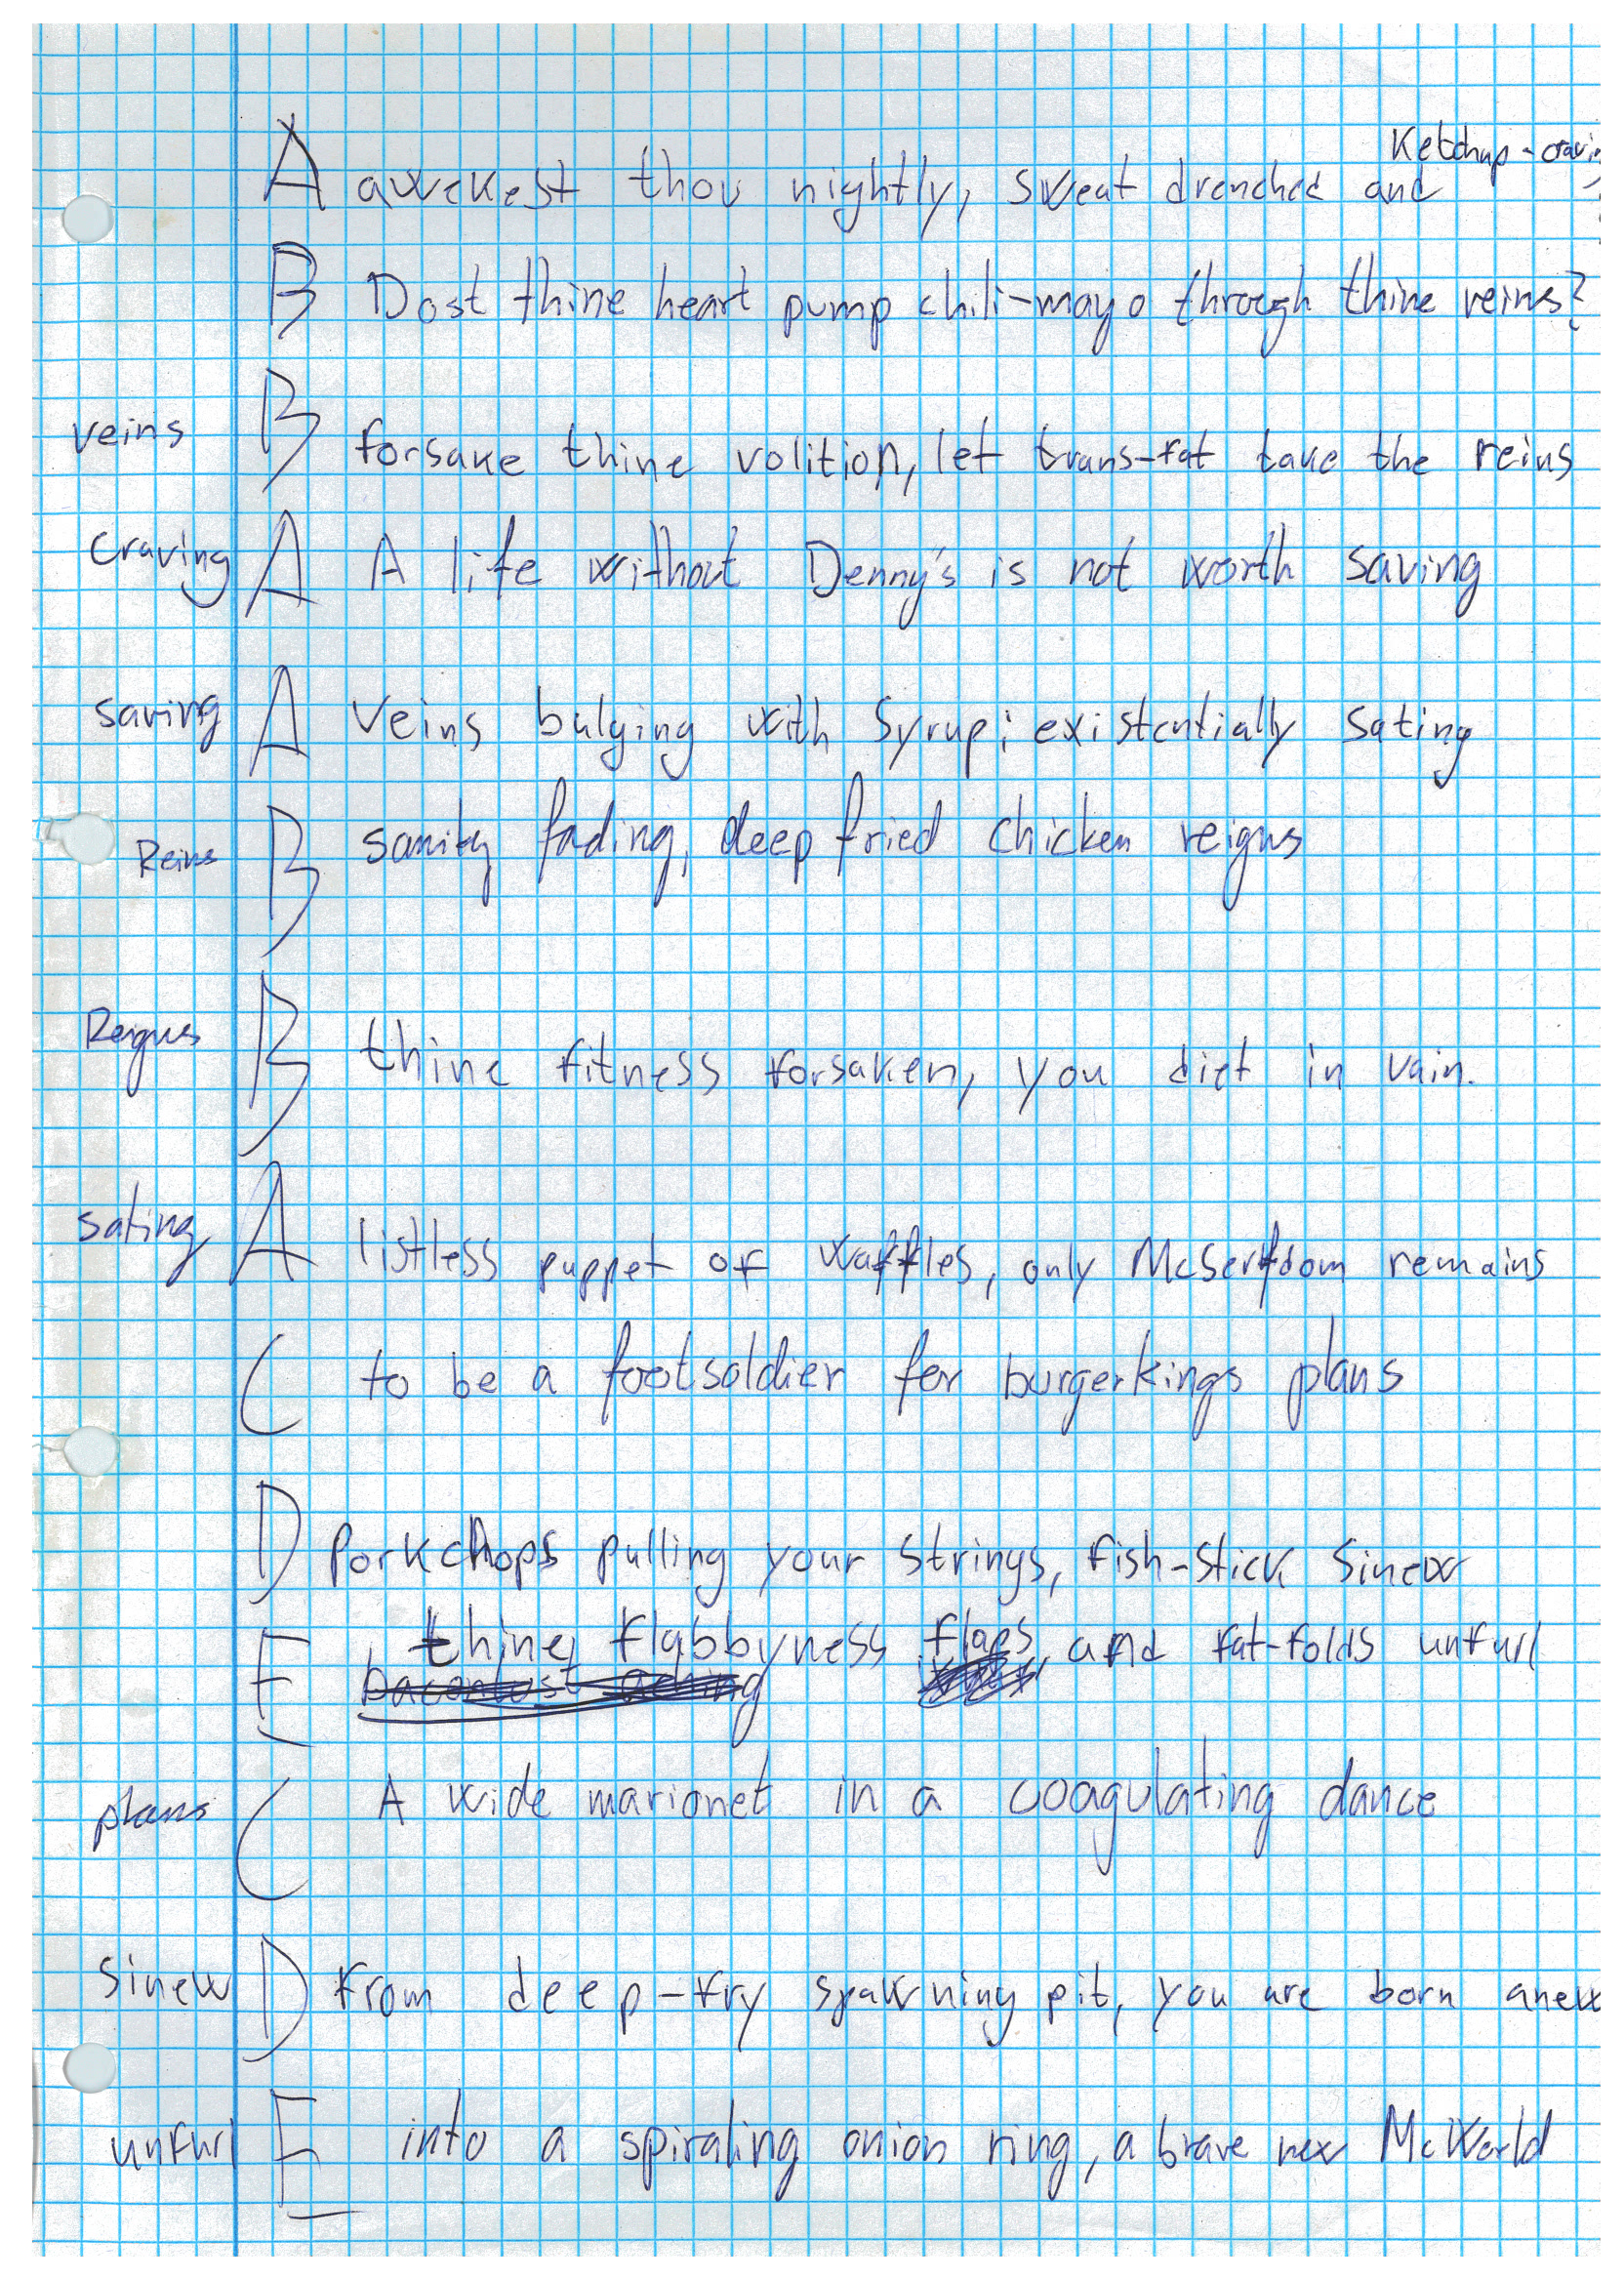 Ketchup-craving
A awekest thou nightly, sweat drenched and
B Dost thine heart pump chili-mayo through thine veins?
veins B forsake thine volition, let trans-fat take the reins
Craving A A life without Denny's is not worth saving
saving A Veins bulging with Syrup; existentially sating
Reins B sanity fading, deepfried chicken reigns
Reigns B thine fitness forsaken, you diet in vain.
sating A listless puppet of waffles, only McSerfdom remains
C to be a footsoldier for burgerkings plans
D Porkchops pulling your strings, fish-stick sinew
E thine flabbyness flaps, and fat-folds unfurl
baconlust aching
plans C A wide marionet in a coagulating dance
Sinew D From deep-fry spawning pit, you are born anew
unfurl E into a spiraling onion ring, a brave new McWorld